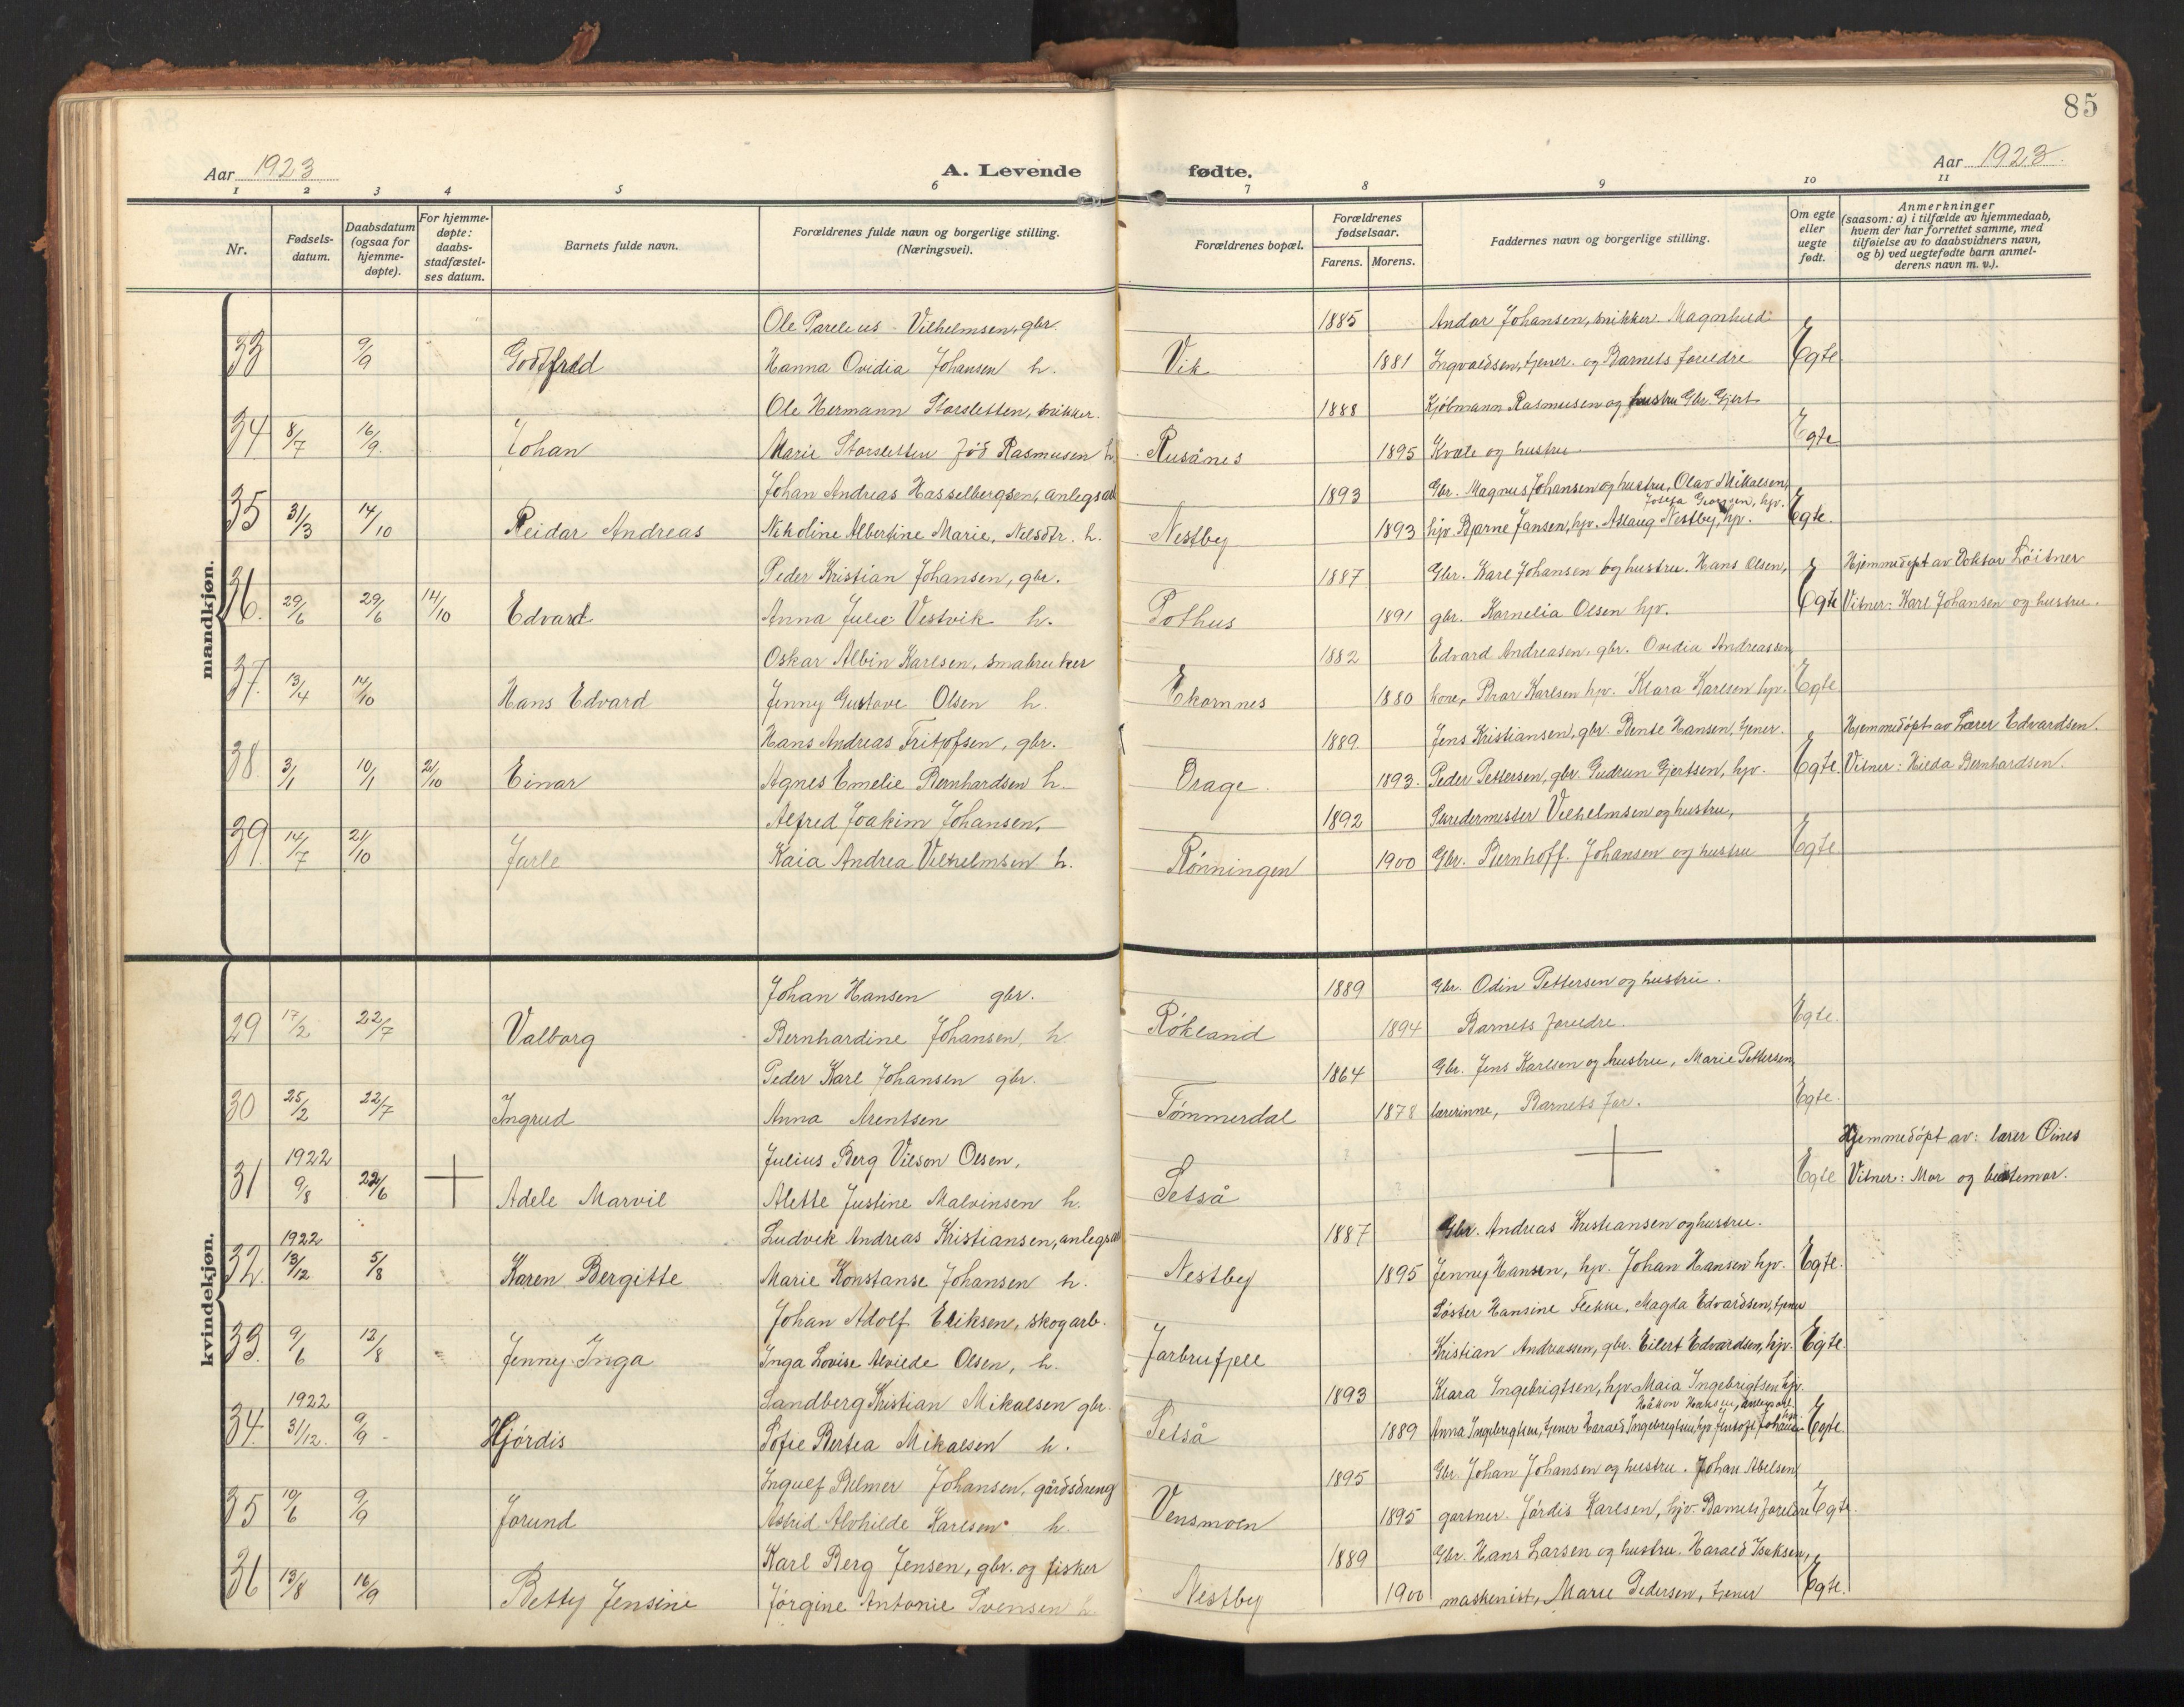 85
Aar 1923
A. Levende
fødte.
Aar 1923.
1 2 3 4 5 6 7 8 9 10 11
Nr.
Fødsels-
datum.
Daabsdatum
(ogsaa for
hjemme-
døpte).
For hjemme-
døpte:
daabs-
stadfæstel-
ses datum.
Barnets fulde navn.
Forældrenes fulde navn og borgerlige stilling.
(Næringsvei).
Forældrenes bopæl.
Forældrenes
fødselsaar.
Farens. Morens.
Faddernes navn og borgerlige stilling.
Om egte
eller
uegte
født.
Anmerkninger
(saasom: a) i tilfælde av hjemmedaab,
hvem der har forrettet samme, med
tilføielse av to daabsvidners navn,
og b) ved uegtefødte barn anmel-
derens navn m. v.).
mandkjøn.
Ole Parelius Vilhelmsen, gbr. 1885 Andor Johansen, snikker. Magnhud
33 9/9 Godtfred Hanna Ovidia Johansen h. Vik 1881 Ingvaldsen, tjener. og Barnets foreldre Egte
Ole Hermann Storsletten, snikker. 1888 Kjøbmann Rasmusen og hustru Gbr. Gjert
34 8/7 16/9. Johan Marie Storsletten fød Rasmusen h. Rusånes 1895 Kvæle og hustru. Egte
Johan Andreas Hasselbergsen, anlegsarb 1893 Gbr. Magnus Johansen og hustru, Olav Mikalsen,
Josefa Georgsen, hjv.
35 31/3 14/10 Reidar Andreas Nikoline Albertine Marie, Nelsdtr. h. Nestby 1893 hjv. Bjarne Jansen, hjv. Aslaug Nestby, hjv. Egte.
Peder Kristian Johansen, gbr. 1887 Gbr. Karl Johansen og hustru. Hans Olsen, Hjemmedøpt av Doktor Löitner
36. 29/6 29/6 14/10 Edvard Anna Julie Vestvik h. Pothus 1891 gbr. Kornelia Olsen hjv. Egte Vitner: Karl Johansen og hustru.
Oskar Albin Karlsen, småbruker 1882 Edvard Andreasen, gbr. Ovidia Andreassen,
37. 13/4 14/10 Hans Edvard Jenny Gustave Olsen h. Ekornnes 1880 kone, Brar Karlsen hjv. Klara Karlsen hjv. Egte
Hans Andreas Fritjofsen, gbr. 1889. Jens Kristiansen, gbr. Bente Hansen, tjener. Hjemmedøpt av Lærer Edvardsen.
38. 3/1 10/1 21/10 Einar Agnes Emelie Bernhardsen h. Drage. 1893. Peder Pettersen, gbr. Gudrun Gjertsen, hjv. Egte. Vitner: Hilda Bernhardsen.
Alfred Joakim Johansen, 1892 Skredermester Vilhelmsen og hustru,
39. 14/7 21/10 Jarle Kaia Andrea Vilhelmsen h. Rønningen 1900 Gbr. Bernhoff. Johansen og hustru Egte
kvindekjøn.
Johan Hansen gbr. 1889 Gbr. Odin Pettersen og hustru.
29 17/2 22/7 Valborg Bernhardine Johansen, h. Røkland 1894 Barnets foreldre. Egte.
Peder Karl Johansen gbr. 1864 Gbr. Jens Karlsen og hustru, Marie Pettersen,
30 25/2 22/7 Ingrud Anna Arentsen Tømmerdal 1878 lærerinne, Barnets far. Egte.
1922 Julius Berg Vilson Olsen, Hjemmedøpt av: lærer Øines
31 9/8 22/6 Adele Marvil Alette Justine Malvinsen h. Setså Egte Vitner: Mor og bestemor.
1922 Ludvik Andreas Kristiansen, anlegsarb 1887 Gbr. Andreas Kristiansen og hustru.
32. 13/12 5/8 Karen Bergitte Marie Konstanse Johansen h. Nestby 1895 Jenny Hansen, hjv. Johan Hansen hjv. Egte.
Johan Adolf Eriksen, skogarb. Søster Hansine Flekke, Magda Edvardsen, tjener
33. 9/6 12/8 Jenny Inga Inga Lovise Alvilde Olsen, h. Jarbrufjell Kristian Andreassen, gbr. Eilert Edvardsen, hjv. Egte.
1922 Sandberg Kristian Mikalsen gbr. 1893 Klara Ingebrigtsen, hjv. Maia Ingebrigtsen hjv.
Håkon
34. 31/12. 9/9 Hjørdis Sofie Bertea Mikalsen h. Setså 1889 Anna Ingebrigtsen, tjener Harald Ingebrigtsen, hjv. Johansen Egte.
Ingulf Belmer Johansen, gårdsdreng 1895 Gbr. Johan Johansen og hustru. Johan Abelsen,
35 10/6 9/9 Jorund Astrid Alvhilde Karlsen h. Vensmoen 1895 gartner. Jørdis Karlsen, hjv. Barnets foreldre Egte.
Karl Berg Jensen, gbr. og fisker 1889 Gbr. Hans Larsen og hustru. Harald Isaksen,
36 13/8 16/9 Betty Jensine Jørgine Antonie Svensen h. Nestby 1900 maskenist, Marie Pedersen, tjener Egte.